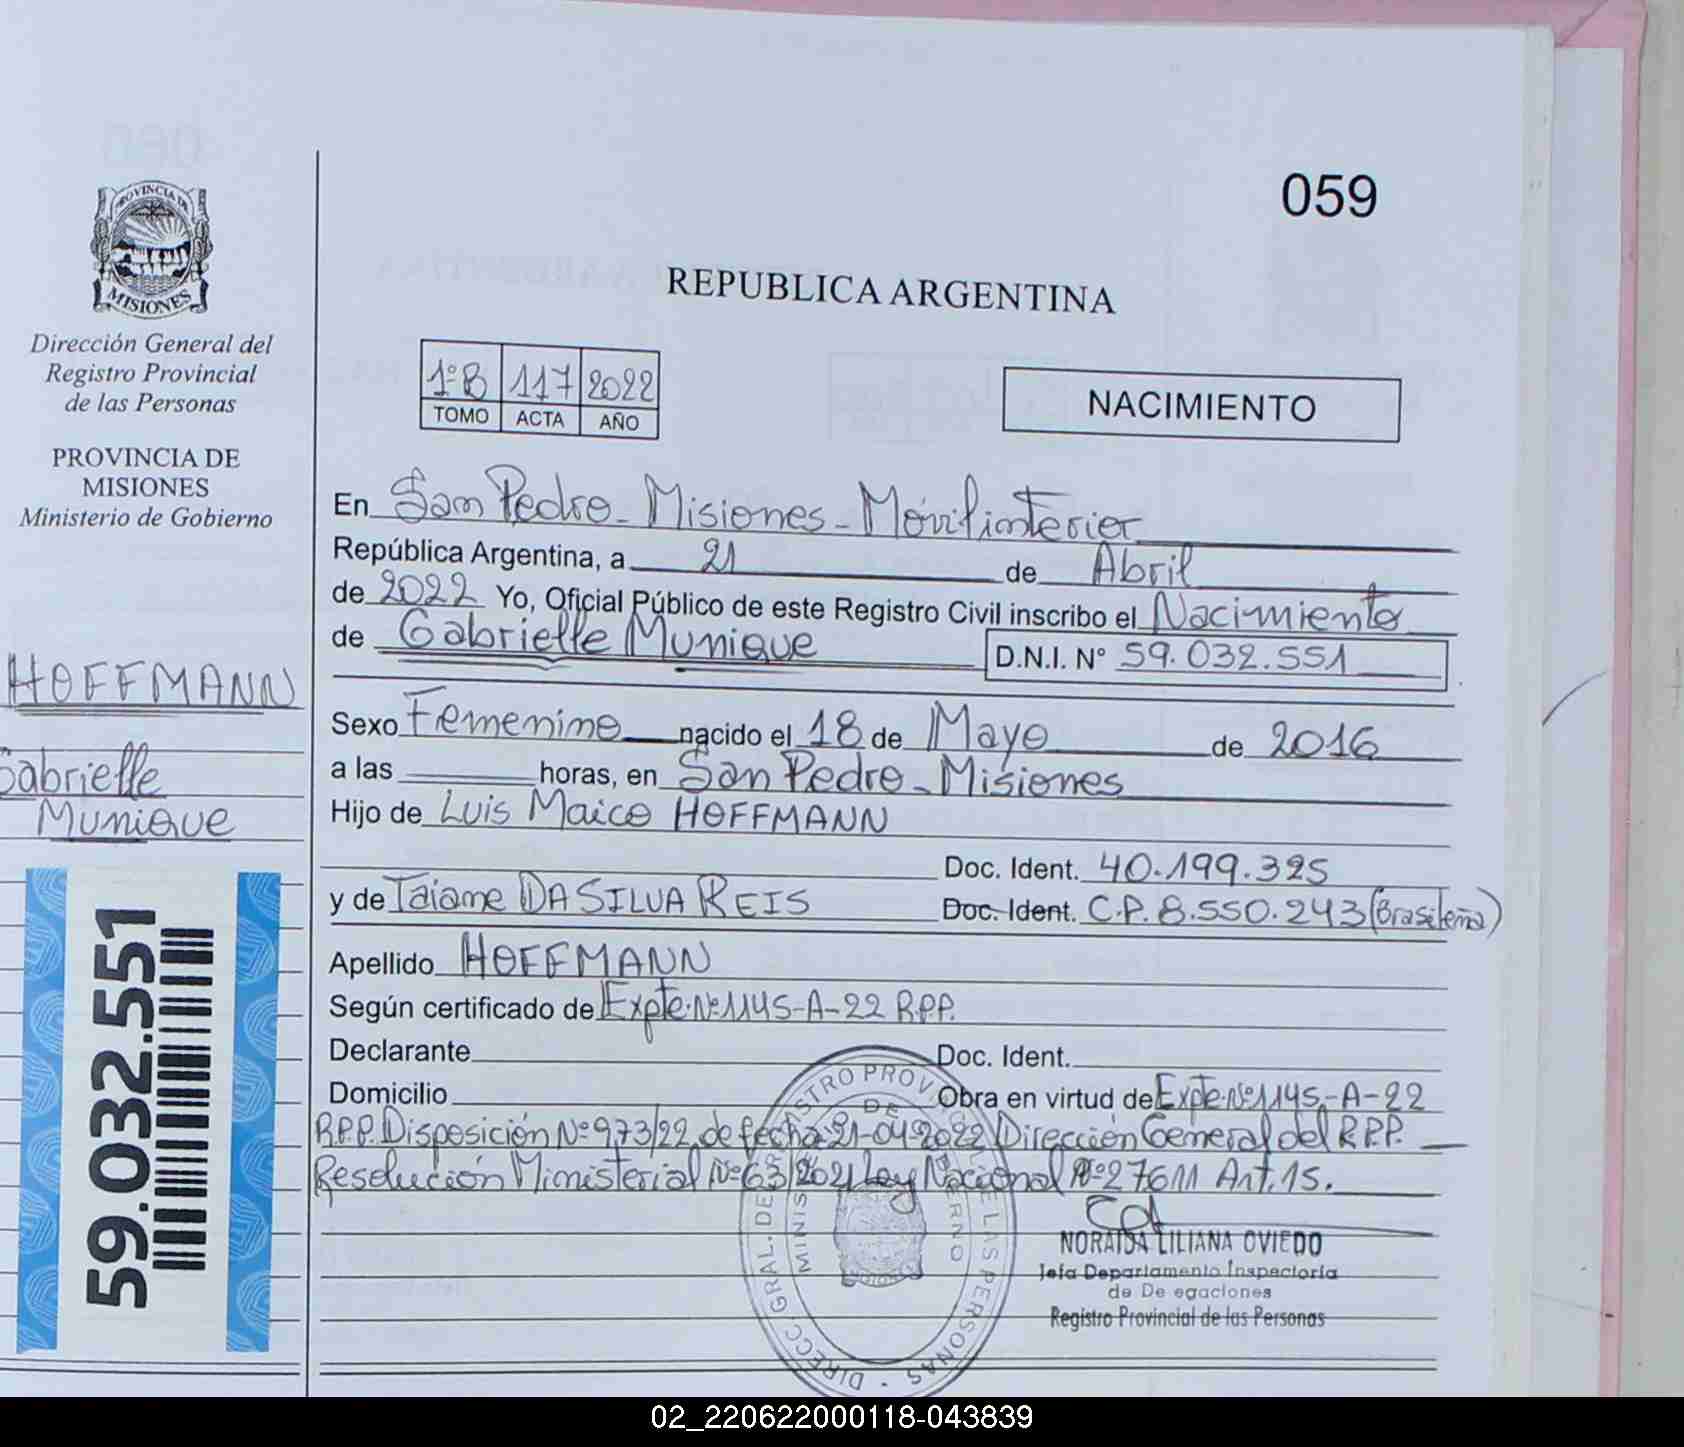 059
PROVINCIA DE
MISIONES
Dirección General del
Registro Provincial
de las Personas
PROVINCIA DE
MISIONES
Ministerio de Gobierno
HOFFMANN
Gabrielle
Munique
59.032.551
REPUBLICA ARGENTINA
1ºB 117 2022
TOMO ACTA AÑO
NACIMIENTO
En San Pedro - Misiones - Móvil interior
República Argentina, a 21 de Abril
de 2022 Yo, Oficial Público de este Registro Civil inscribo el Nacimiento
de Gabrielle Munique D.N.I. N° 59.032.551
Sexo Femenino nacido el 18 de Mayo de 2016
a las horas, en San Pedro - Misiones
Hijo de Luis Maico HOFFMANN
Doc. Ident. 40.199.325
y de Taiame DA SILVA REIS Doc. Ident. C.P. 8.550.243 (Brasileña)
Apellido HOFFMANN
Según certificado de Expte. Nº 1145-A-22 R.P.P.
Declarante Doc. Ident.
Domicilio Obra en virtud de Expte. Nº 1145-A-22
R.P.P. Disposición Nº 973/22 de fecha 21-04-2022 Dirección General del R.P.P.
Resolución Ministerial Nº 63/2021 Ley Nacional Nº 27611 Art. 15.
NORAIDA LILIANA OVIEDO
Jefa Departamento Inspectoría
de De egaciones
Registro Provincial de las Personas
02_220622000118-043839